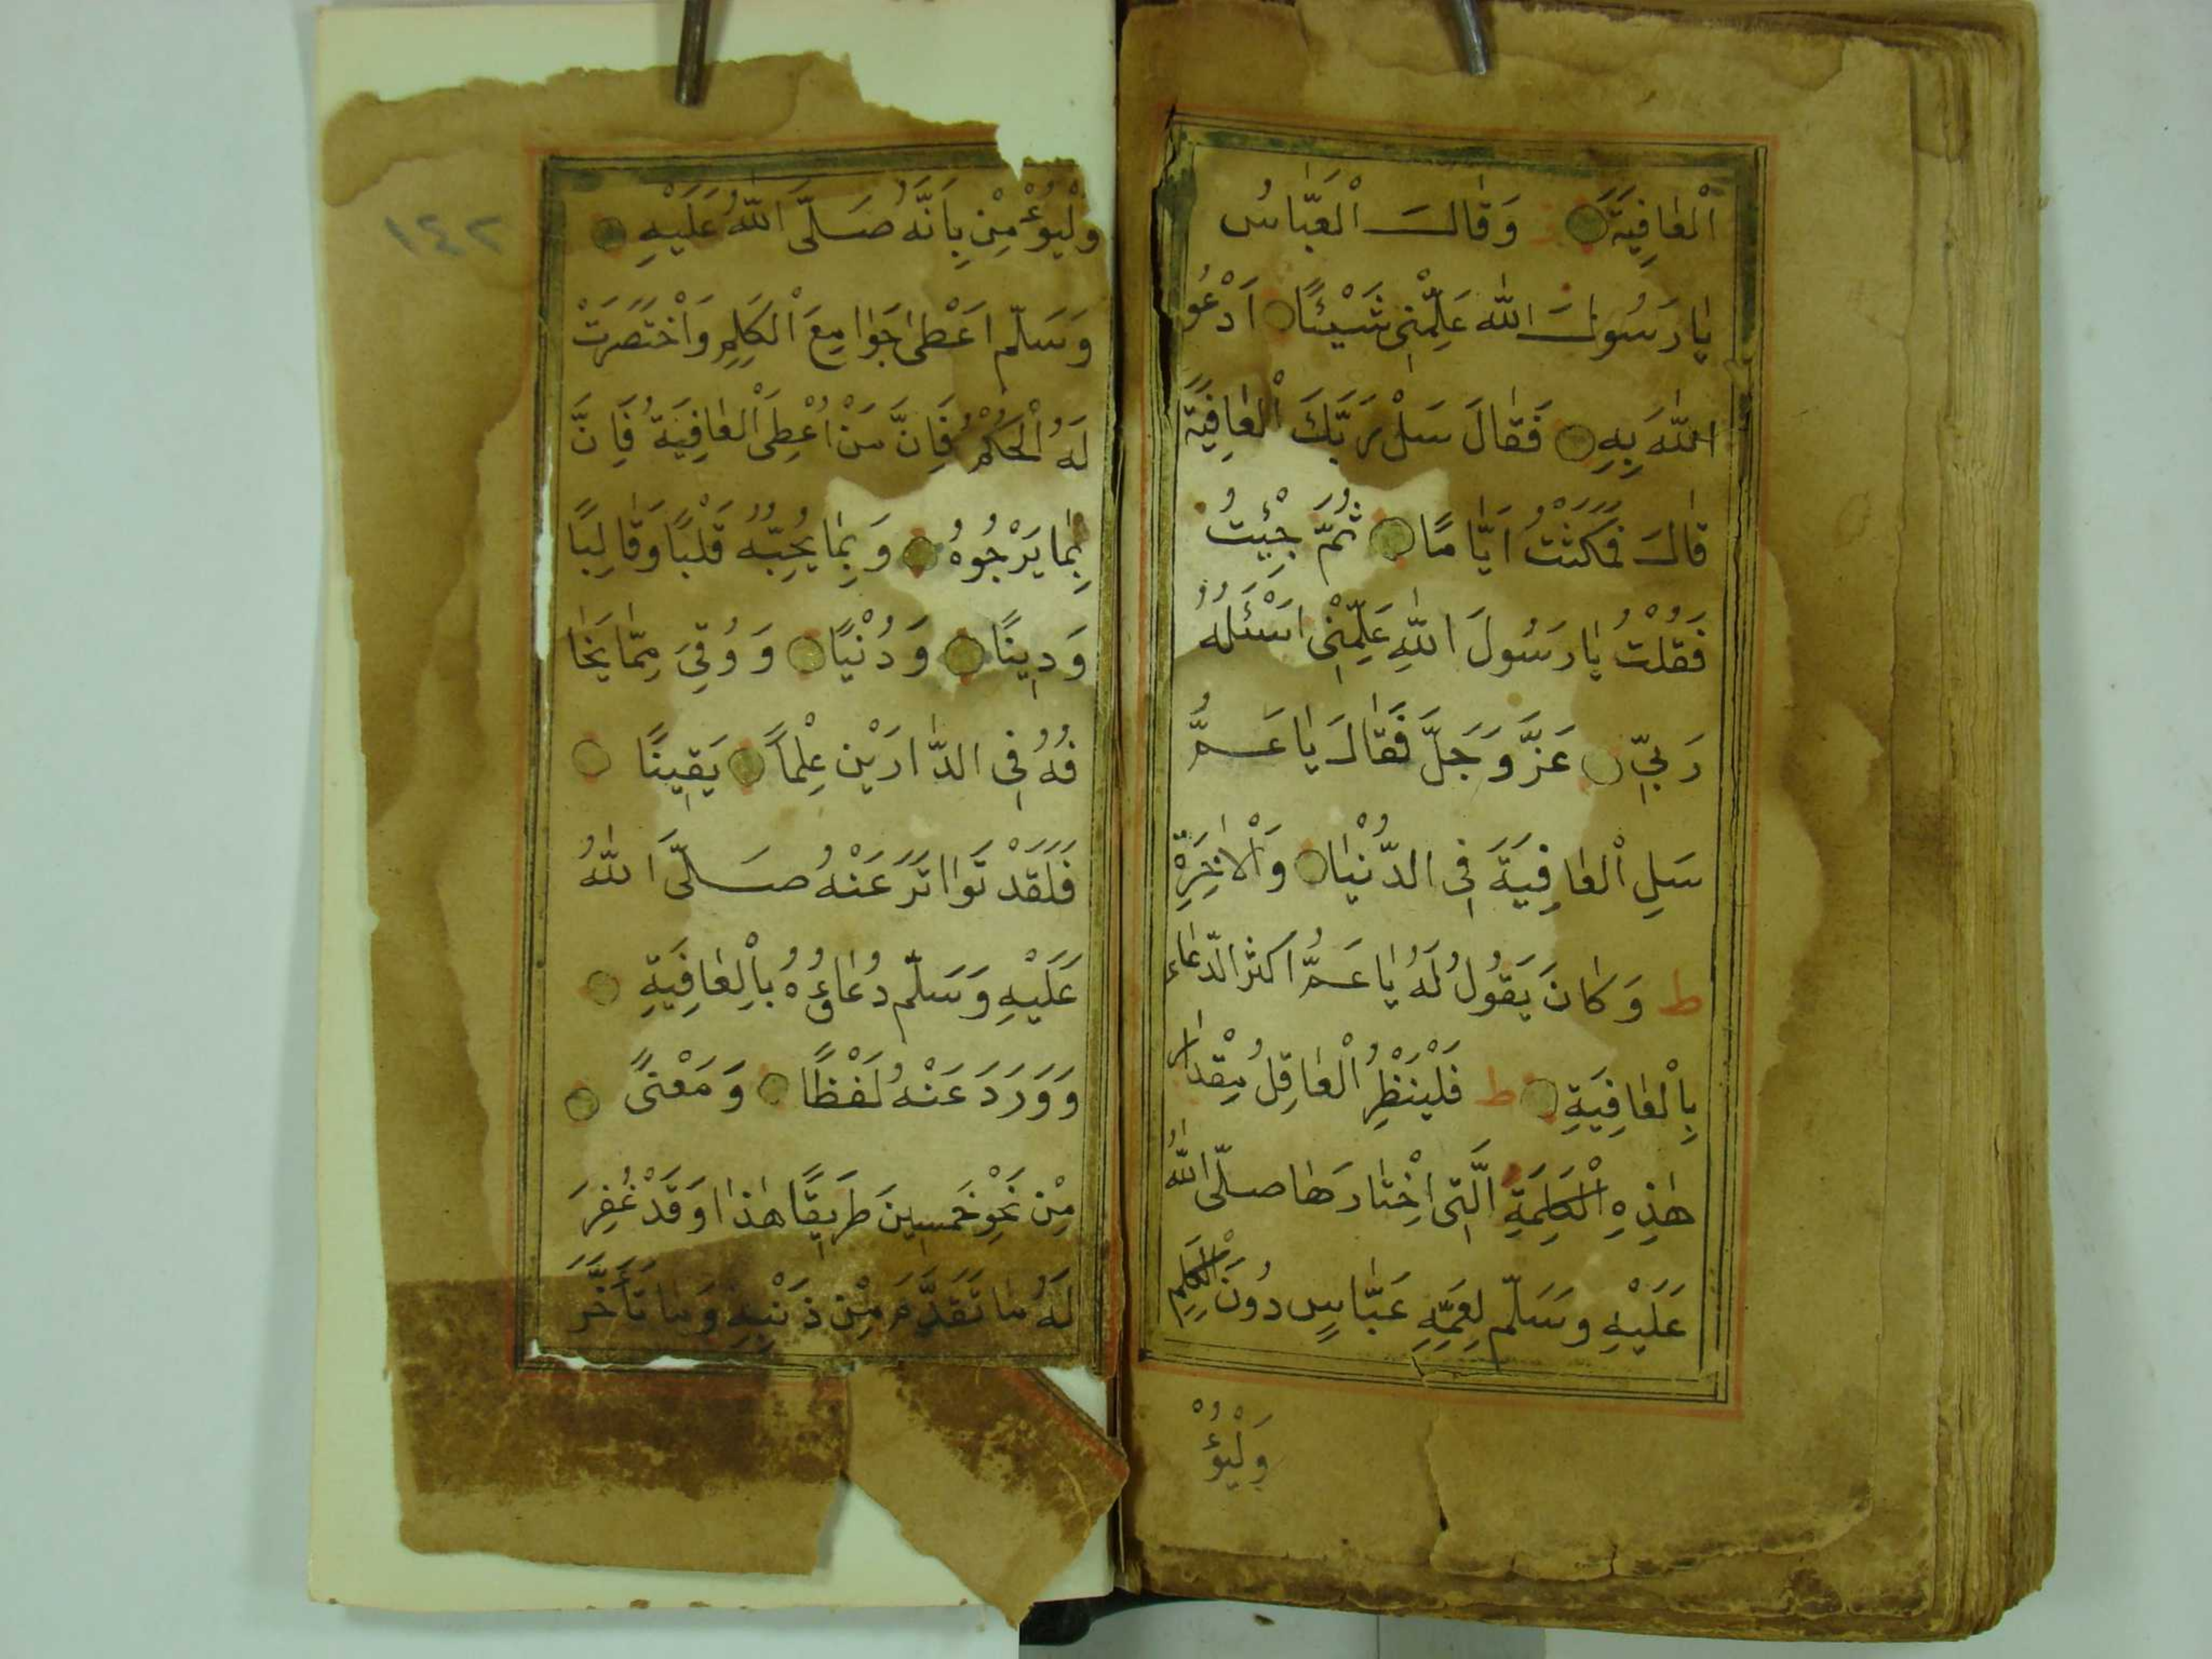 اَلْعَافِيَةَ ز وَقَالَ الْعَبَّاسُ
يَا رَسُولَ اللّٰهِ عَلِّمْنِي شَيْئًا اَدْعُو
اللّٰهَ بِهِ فَقَالَ سَلْ رَبَّكَ الْعَافِيَةَ
قَالَ فَمَكَثْتُ اَيَّامًا ثُمَّ جِئْتُ
فَقُلْتُ يَا رَسُولَ اللّٰهِ عَلِّمْنِي اَسْئَلُهُ
رَبِّي عَزَّ وَجَلَّ فَقَالَ يَا عَمُّ
سَلِ الْعَافِيَةَ فِي الدُّنْيَا وَالْاٰخِرَةِ
ط وَكَانَ يَقُولُ لَهُ يَا عَمُّ اَكْثِرِ الدُّعَاءَ
بِالْعَافِيَةِ ط فَلْيَنْظُرِ الْعَاقِلُ مِقْدَارَ
هٰذِهِ الْكَلِمَةِ الَّتِي اِخْتَارَهَا صَلَّى اللّٰهُ
عَلَيْهِ وَسَلَّمَ لِعَمِّهِ عَبَّاسٍ دُونَ الْكَلِمِ
وَلْيُؤْ
١٤٢
وَلْيُؤْمِنْ بِاَنَّهُ صَلَّى اللّٰهُ عَلَيْهِ
وَسَلَّمَ اُعْطِيَ جَوَامِعَ الْكَلِمِ وَاخْتُصِرَتْ
لَهُ الْحِكَمُ فَاِنَّ مَنْ اُعْطِيَ الْعَافِيَةَ فَازَ
بِمَا يَرْجُوهُ وَبِمَا يُحِبُّهُ قَلْبًا وَقَالِبًا
وَدِينًا وَدُنْيًا وَوُقِيَ مِمَّا يَخَا
فُهُ فِي الدَّارَيْنِ عِلْمًا يَقِينًا
فَلَقَدْ تَوَاتَرَ عَنْهُ صَلَّى اللّٰهُ
عَلَيْهِ وَسَلَّمَ دُعَاؤُهُ بِالْعَافِيَةِ
وَوَرَدَ عَنْهُ لَفْظًا وَمَعْنًى
مِنْ نَحْوِ خَمْسِينَ طَرِيقًا هٰذَا وَقَدْ غُفِرَ
لَهُ مَا تَقَدَّمَ مِنْ ذَنْبِهِ وَمَا تَأَخَّرَ